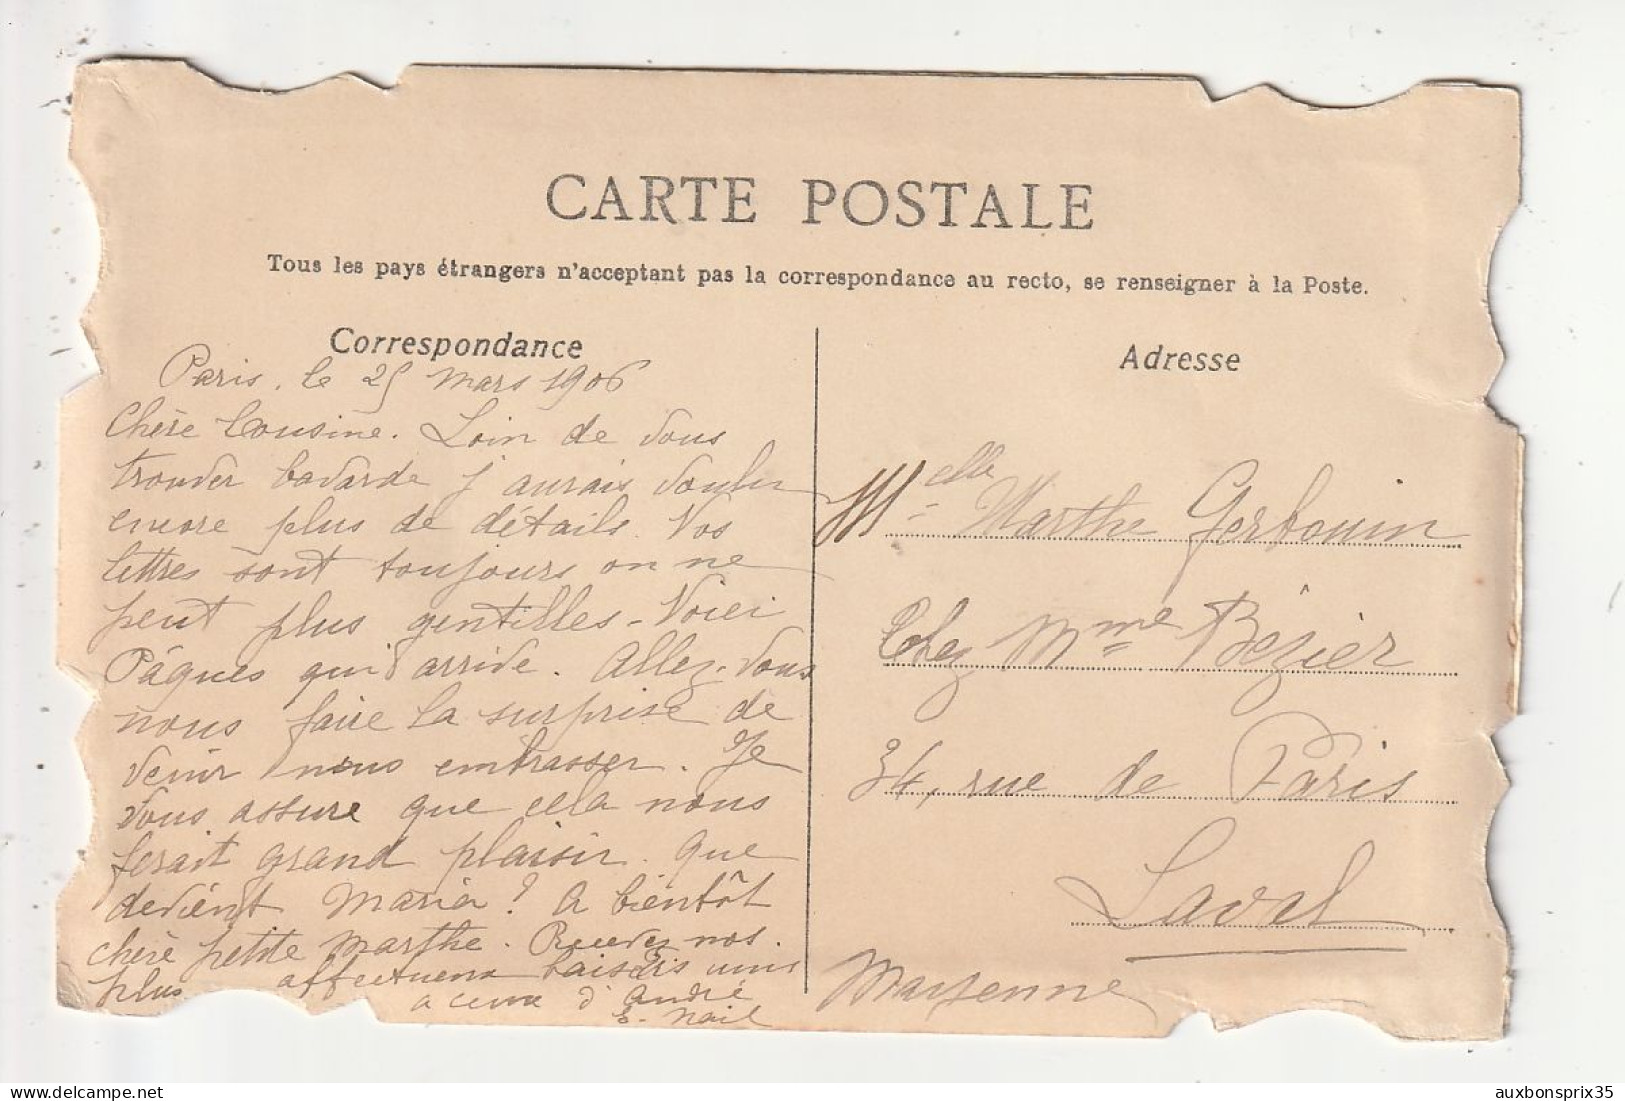 CARTE POSTALE
Tous les pays étrangers n'acceptant pas la correspondance au recto, se renseigner à la Poste.
Correspondance
Paris, le 25 mars 1906
Chère Cousine. Loin de vous
trouver bavarde j'aurais voulu
encore plus de détails. Vos
lettres sont toujours on ne
peut plus gentilles - Voici
Pâques qui arrive. Allez-vous
nous faire la surprise de
venir nous embrasser. Je
vous assure que cela nous
ferait grand plaisir. Que
devient Maria ? A bientôt
chère petite Marthe. Recevez nos
plus affectueux baisers unis
a ceux d'André
E. Nail
Adresse
Melle Marthe Gerbouin
Chez Mme Bézier
34, rue de Paris
Laval
Mayenne
auxbonsprix35